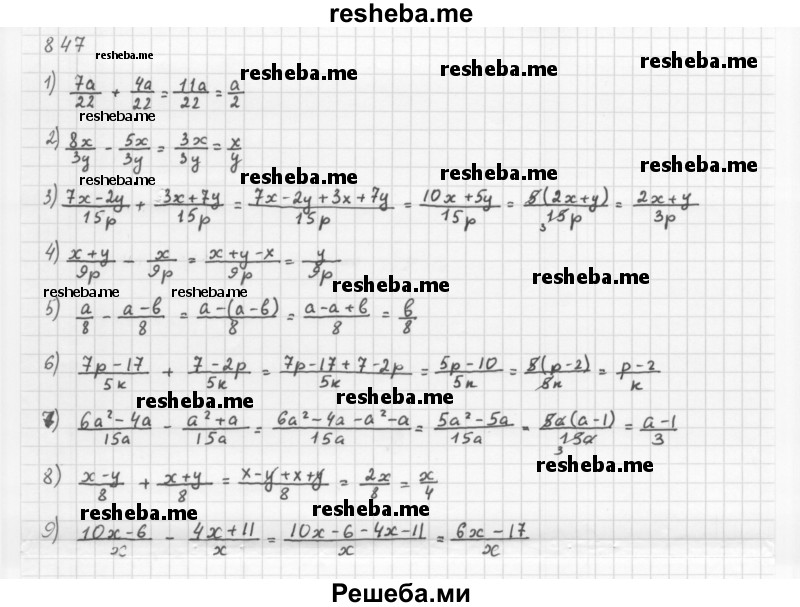 resheba.me
847
resheba.me
resheba.me resheba.me resheba.me
1) 7a/22 + 4a/22 = 11a/22 = a/2
resheba.me
2) 8x/3y - 5x/3y = 3x/3y = x/y
resheba.me resheba.me resheba.me resheba.me
3) (7x-2y)/15p + (3x+7y)/15p = (7x-2y+3x+7y)/15p = (10x+5y)/15p = 5(2x+y)/15p 3 = (2x+y)/3p
4) (x+y)/9p - x/9p = (x+y-x)/9p = y/9p
resheba.me resheba.me resheba.me resheba.me
5) a/8 - (a-b)/8 = (a-(a-b))/8 = (a-a+b)/8 = b/8
6) (7p-17)/5к + (7-2p)/5к = (7p-17+7-2p)/5к = (5p-10)/5к = 5(p-2)/5к = (p-2)/к
resheba.me resheba.me
7) (6a²-4a)/15a - (a²+a)/15a = (6a²-4a-a²-a)/15a = (5a²-5a)/15a = 5a(a-1)/15a 3 = (a-1)/3
resheba.me
8) (x-y)/8 + (x+y)/8 = (x-y+x+y)/8 = 2x/8 = x/4
resheba.me resheba.me
9) (10x-6)/x - (4x+11)/x = (10x-6-4x-11)/x = (6x-17)/x
Решеба.ми